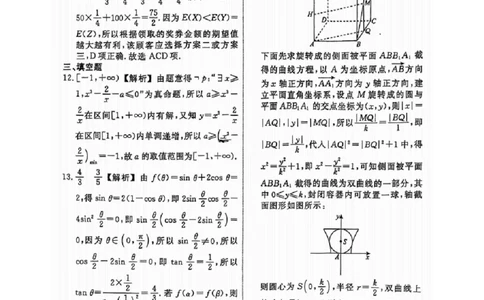 50×1/4+100×1/4=75/2.因为 E(X)<E(Y)=
E(Z),所以根据领取的奖券金额的期望值
越大越有利,该顾客应选择方案二或方案
三,D项正确.故选ACD项.
三、填空题
12.[-1,+∞) 【解析】由题意得¬p:“∃x≥
1,x²-2/x-a≤0”为真命题,所以a≥x²-
2/x在区间[1,+∞)内有解,又知y=x²-2/x
在区间[1,+∞)内单调递增,所以a≥(x²-
2/x)min=-1,故a的取值范围为[-1,+∞).
13.4/3 3/5 【解析】由 f(θ)=sin θ+2cos θ=
2,得 sin θ=2(1-cos θ),即 2sin θ/2 cos θ/2-
4sin² θ/2=0,即 sin θ/2(cos θ/2-2sin θ/2)=
0,因为θ∈(0,π/2),所以 sin θ/2≠0,所以
cos θ/2-2sin θ/2=0,即 tan θ/2=1/2,所以
tan θ=2×1/2 =4/3.若 f(α)=f(β),则
H
M
D
C
Q
A
B
下面先求旋转成的侧面被平面 ABB₁A₁ 截
得的曲线方程,以 A 为坐标原点,AB方向
为 x 轴正方向,AA₁方向为 y 轴正方向,建
立平面直角坐标系,设点 M 旋转成的圆与
平面 ABB₁A₁ 的交点坐标为(x,y),则|x|=
|AQ|,|y|=|MQ|,所以|MQ|/k=|BQ|/1,即
|BQ|=|y|/k,代入|AQ|²=|BQ|²+1中,得
x²=y²/k²+1,即x²-y²/k²=1,可知侧面被平面
ABB₁A₁ 截得的曲线为双曲线的一部分,其
中0≤y≤k,封闭容器内可放置一球,轴截
面图形如图所示:
y
S
A
x
则圆心为 S(0,k/2),半径 r=k/2,双曲线上